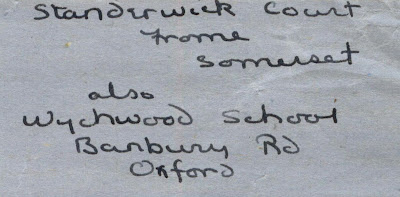 Standerwick Court
Frome
Somerset
also
Wychwood School
Banbury Rd
Oxford